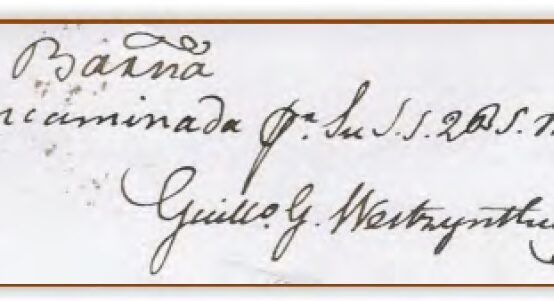 Barna
ncaminada pr. Su S.S. Q B S. M
Guillo. G. Westzynthiu